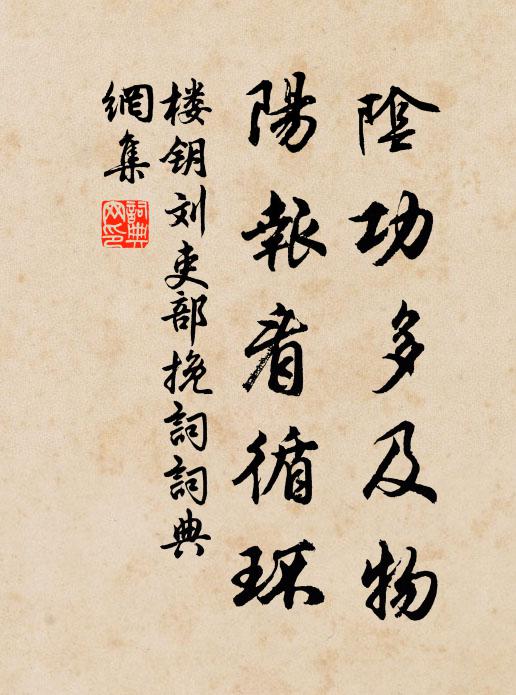 陰功多及物
陽報看循环
楼钥刘吏部挽詞詞典
網集
詞典網印